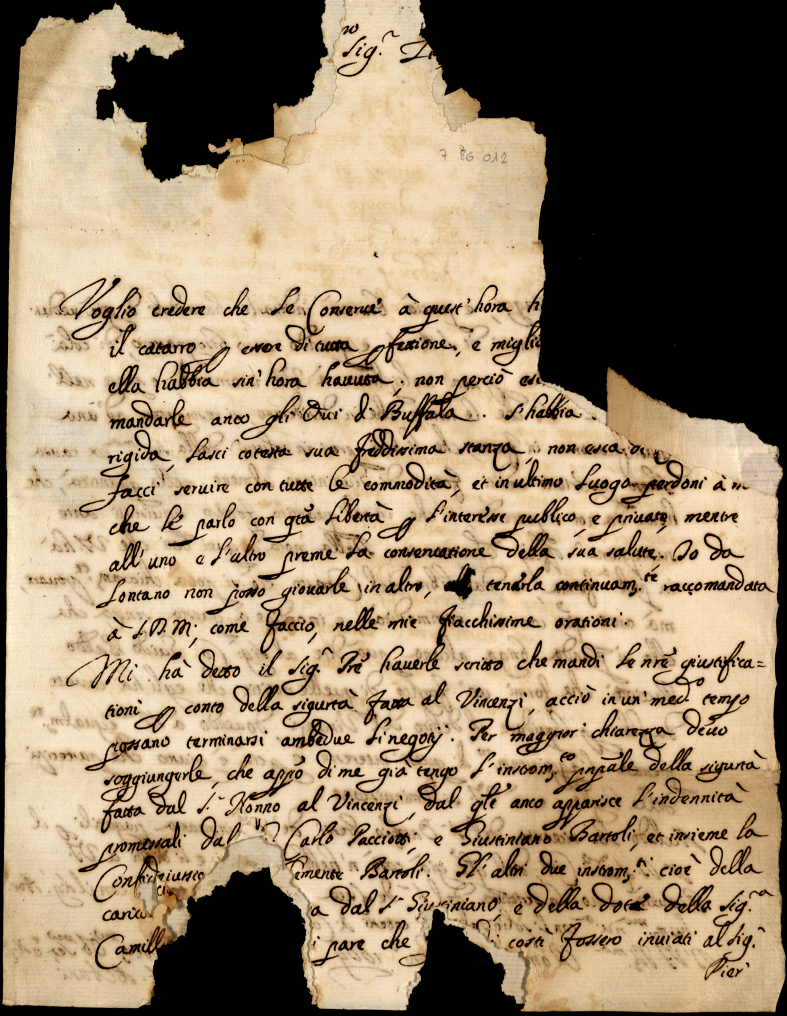 Sig.r
7 86 012
Voglio credere che le Conserue à quest' hora h
il catarro p essere di tutta pfettione, e miglio
ella habbia sin' hora hauuta, non perciò
mandarle anco gli Oui di Buffala. S'habbia
rigida, lasci cotesta sua freddissima stanza, non esca di
facci seruire con tutte le commodità, et in ultimo luogo perdoni à m
che le parlo con qta libertà p l'interesse publico, e priuato, mentre
all' uno e l'altro preme la conseruatione della sua salute. Io da
lontano non posso giouarle in altro, tenerla continuam.te raccomandata
à S.D.M., come faccio, nelle mie fiacchissime orationi.
Mi hà detto il Sig.r Pre hauerle scritto che mandi le nre giustifica=
tioni p conto della sigurtà fatta al Vincenzi, acciò in un' med.o tempo
possano terminarsi ambedue li negotij. Per maggior chiarezza deuo
soggiungerle, che appo di me già tengo l'instrom.to pnpale della sigurtà
fatta dal S.r Nonno al Vincenzi, dal qle anco apparisce l'indennità
promessali dal Carlo Pacciotti, e Giustiniano Bartoli, et insieme la
mente Bartoli. Gl' altri due instrom.ti cioè della
caric a dal S.r Giustiniano, e della dote della Sig.a
Camill i pare che di costì fossero inuiati al Sig.r
Pier